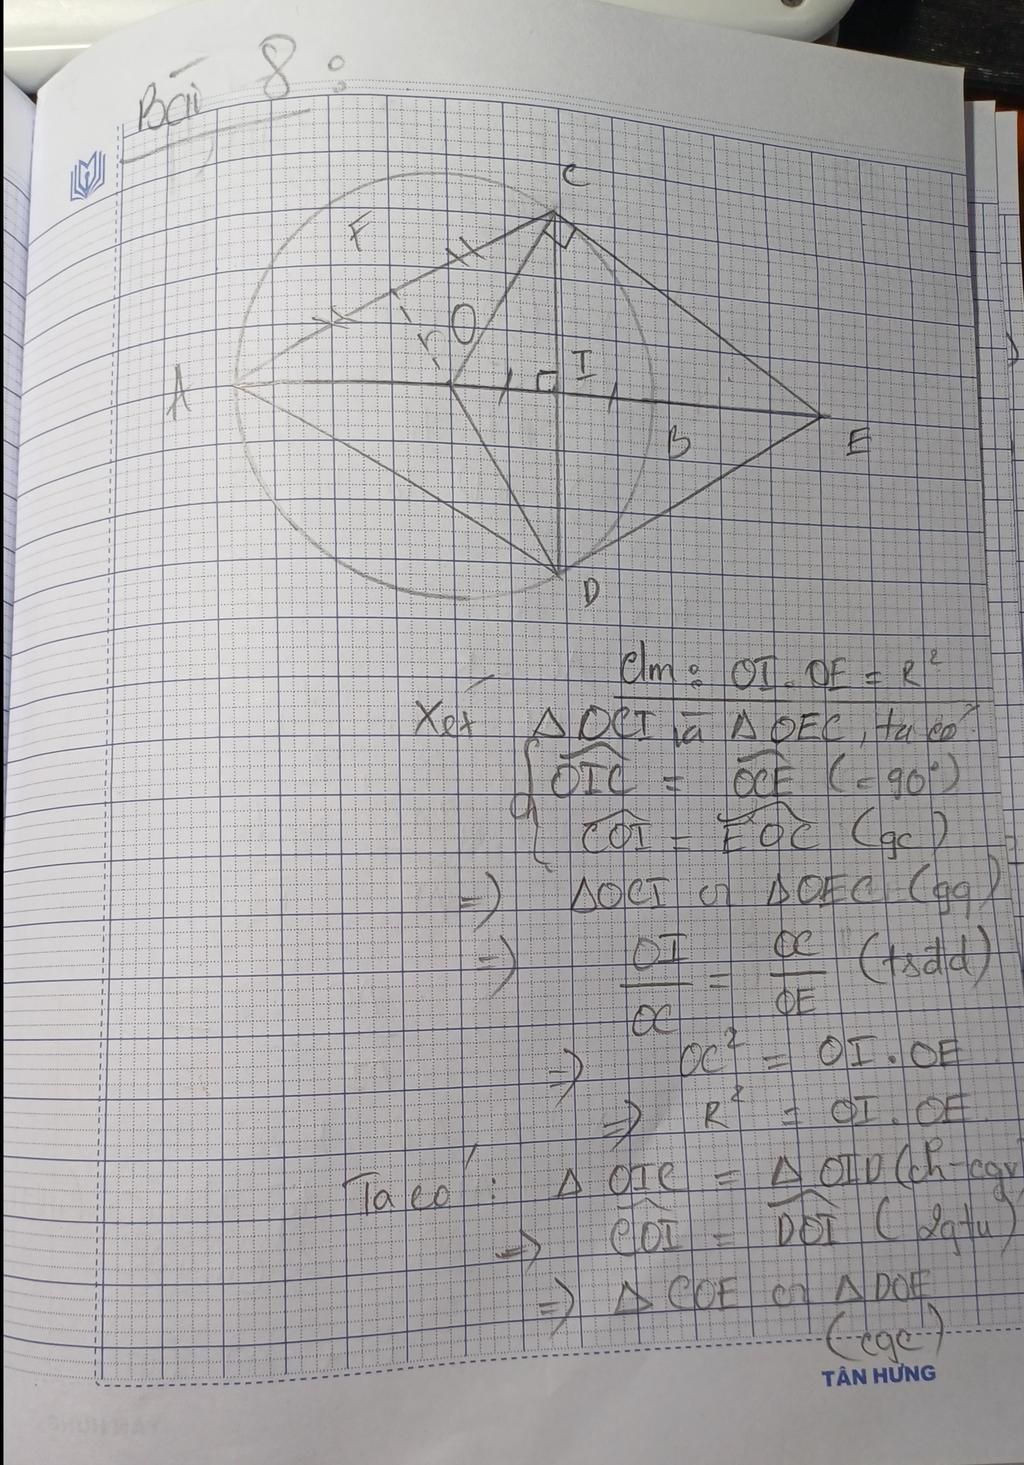 Bài 8:
C
F
O
A
I
B
E
D
Clm: OI. OE = R²
Xét ΔOCI và ΔOEC, ta có:
OIC = OCE (=90°)
COI = EOC (gc)
=> ΔOCI ∽ ΔOEC (gg)
=> OI/OC = OC/OE (tsđd)
=> OC² = OI. OE
=> R² = OI. OE
Ta có: Δ OIC = Δ OID (ch-cgv
=> COI = DOI (2gtu)
=> Δ COE ∽ Δ DOE
(cgc)
TÂN HƯNG